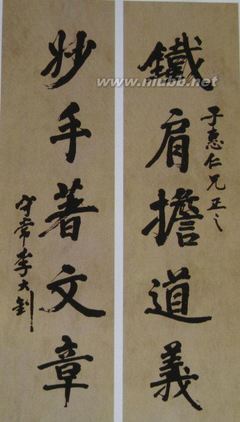 鐵肩擔道義
子惠仁兄正之
妙手著文章
守常李大釗
www.niubb.net